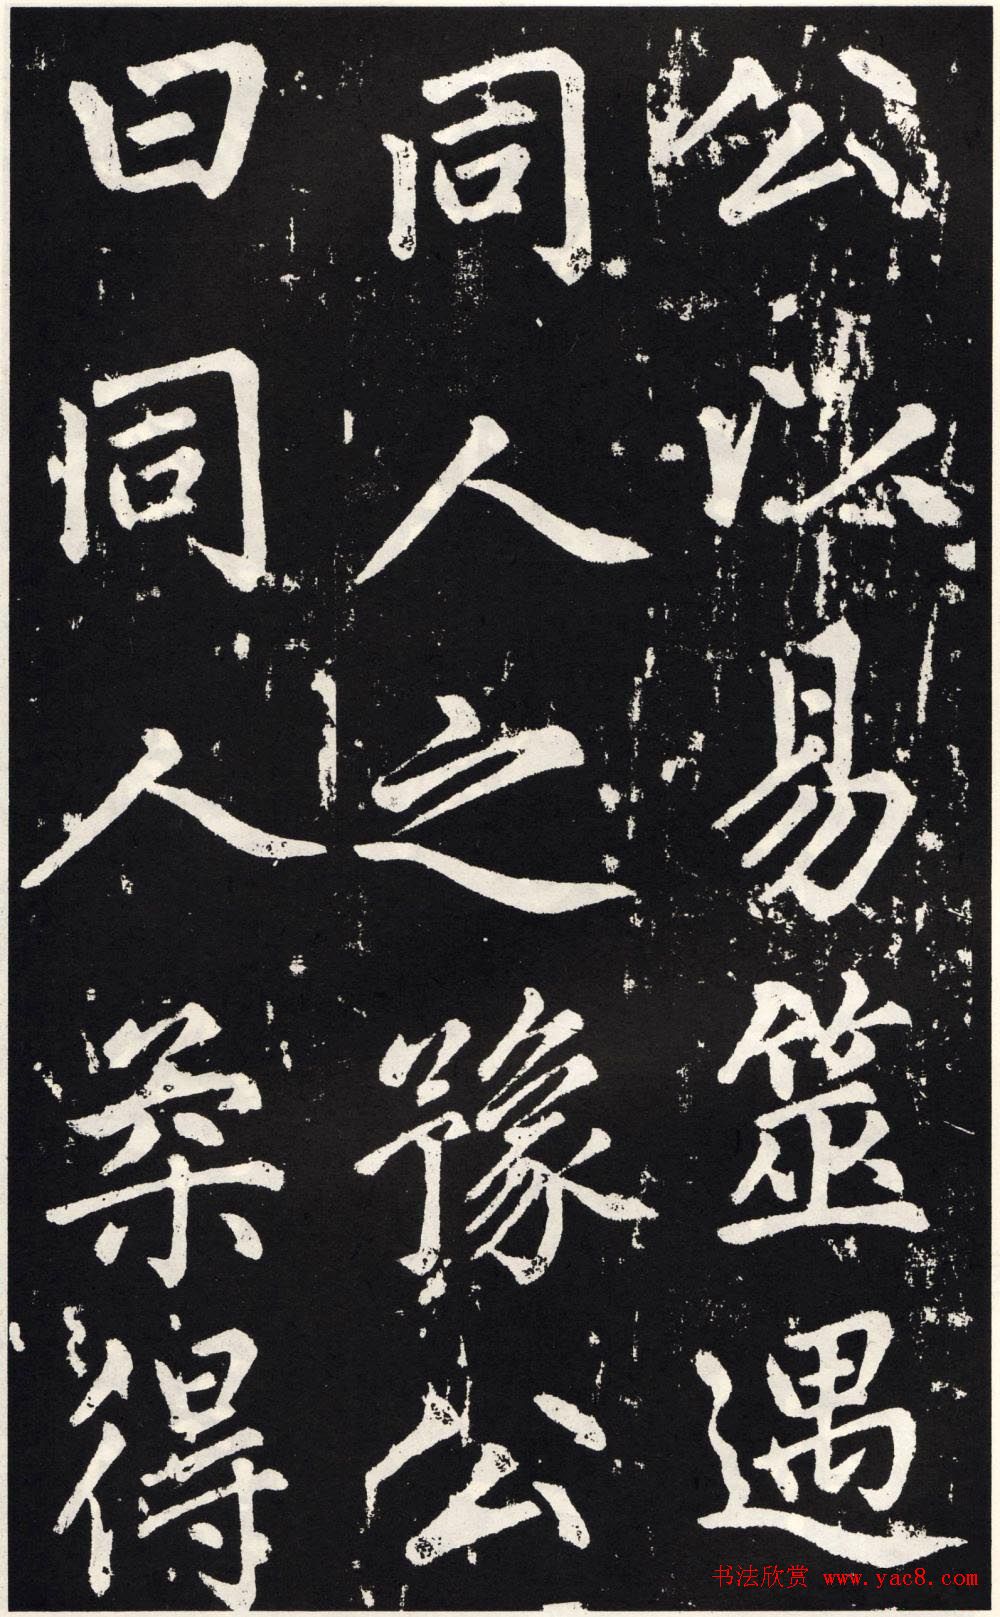 公以易筮遇
同人之豫公
曰同人栄得
书法欣赏 www.yac8.com